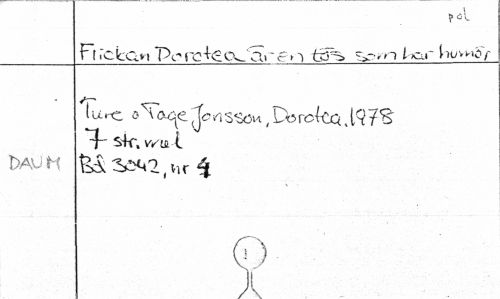 pol
Flickan Dorotea är en tös som har humör
Ture o Tage Jonsson, Dorotea, 1978
7 str. mel
DAUM Bd 3042, nr 4